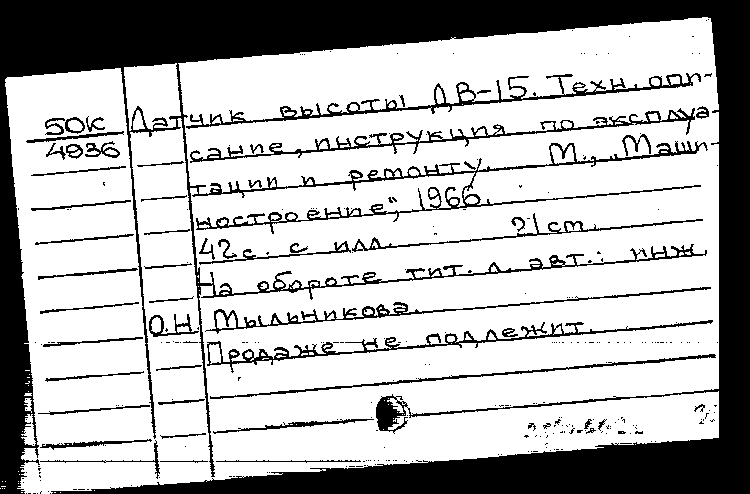 50К Датчик высоты ДВ-15. Техн. опи-
4936 сание, инструкция по эксплуа-
тации и ремонту. М., „Маши-
ностроение", 1966.
42 с. с илл. 21 cm.
На обороте тит. л. авт.: инж.
О.Н. Мыльникова.
Продаже не подлежит.